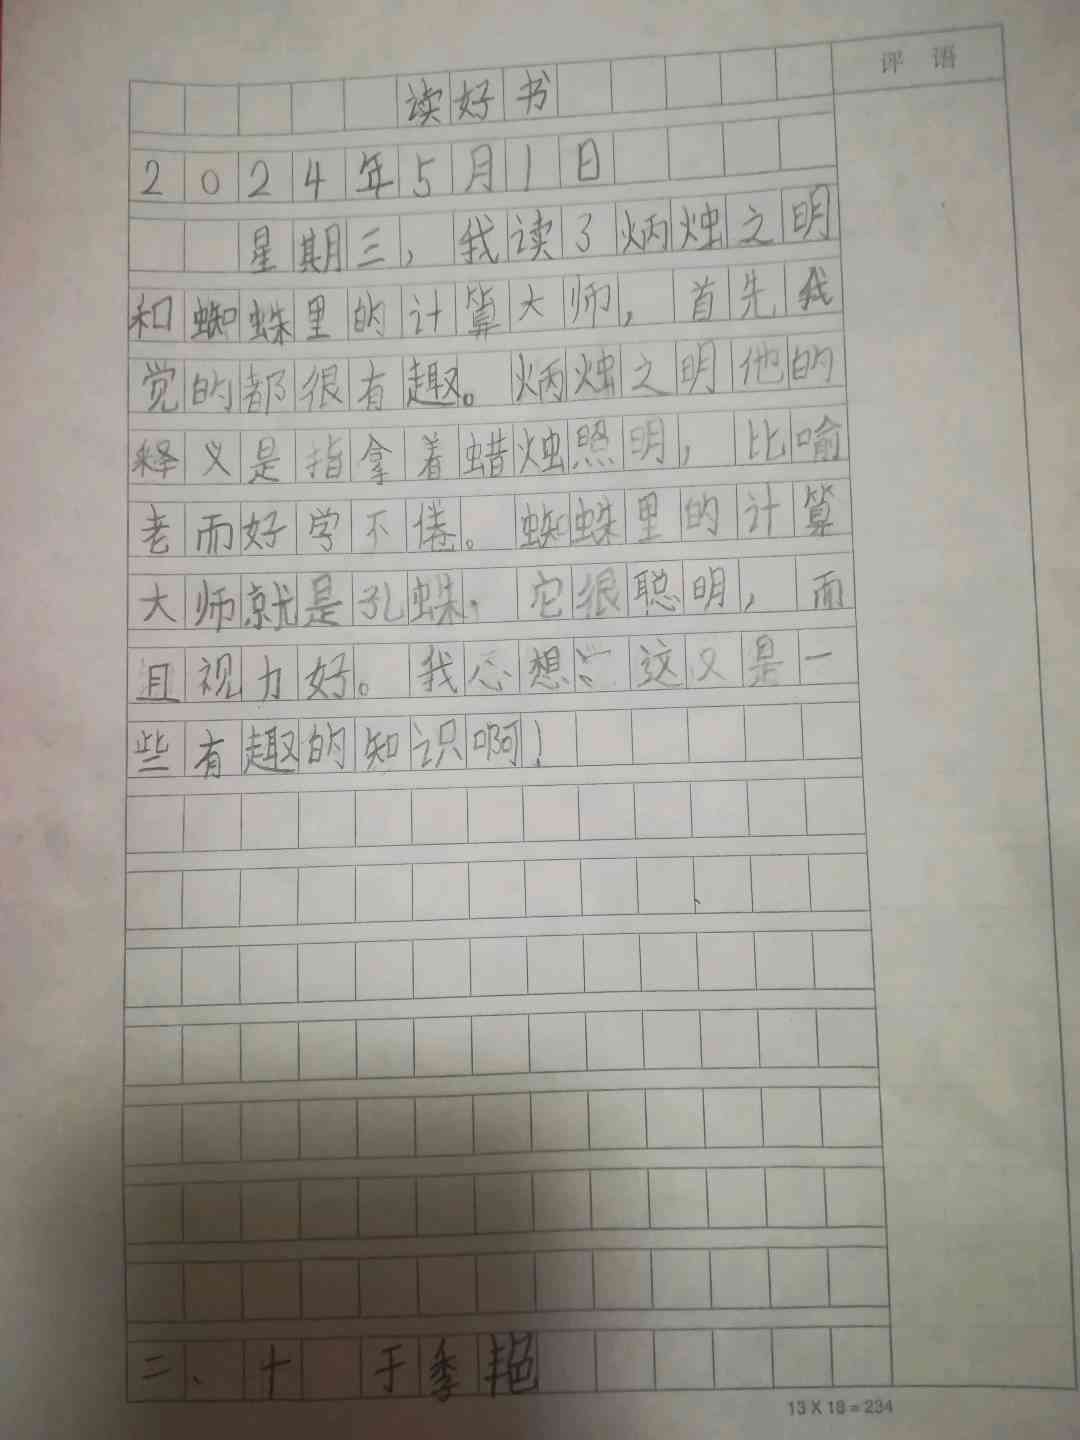 评语
读好书
2024年5月1日
星期三，我读了炳烛之明
和蜘蛛里的计算大师，首先我
觉的都很有趣。炳烛之明他的
释义是指拿着蜡烛照明，比喻
老而好学不倦。蜘蛛里的计算
大师就是孔蛛．它很聪明，而
且视力好。我心想：这又是一
些有趣的知识啊！
二、十 于季艳
13X18=234